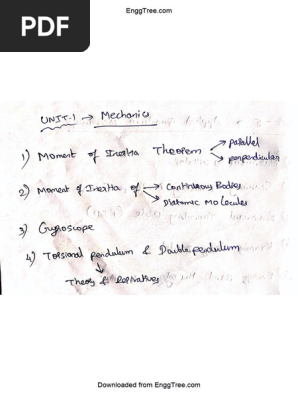 EnggTree.com
PDF
UNIT-1 → Mechanics
1) Moment of Inertia Theorem → parallel
→ perpendicular
2) Moment of Inertia of → Continuous Bodies
→ Diatomic Molecules
3) Gyroscope
4) Torsional pendulum & Double pendulum
Theory & Derivatives
Downloaded from EnggTree.com